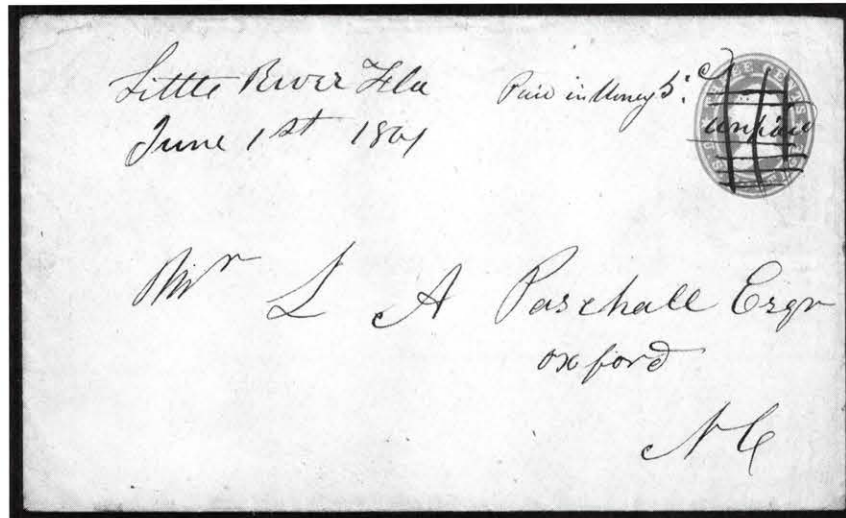 Little River Fla
June 1st 1861
Paid in Money 5c
unpaid
Mr L A Paschall Esqr
oxford
N C